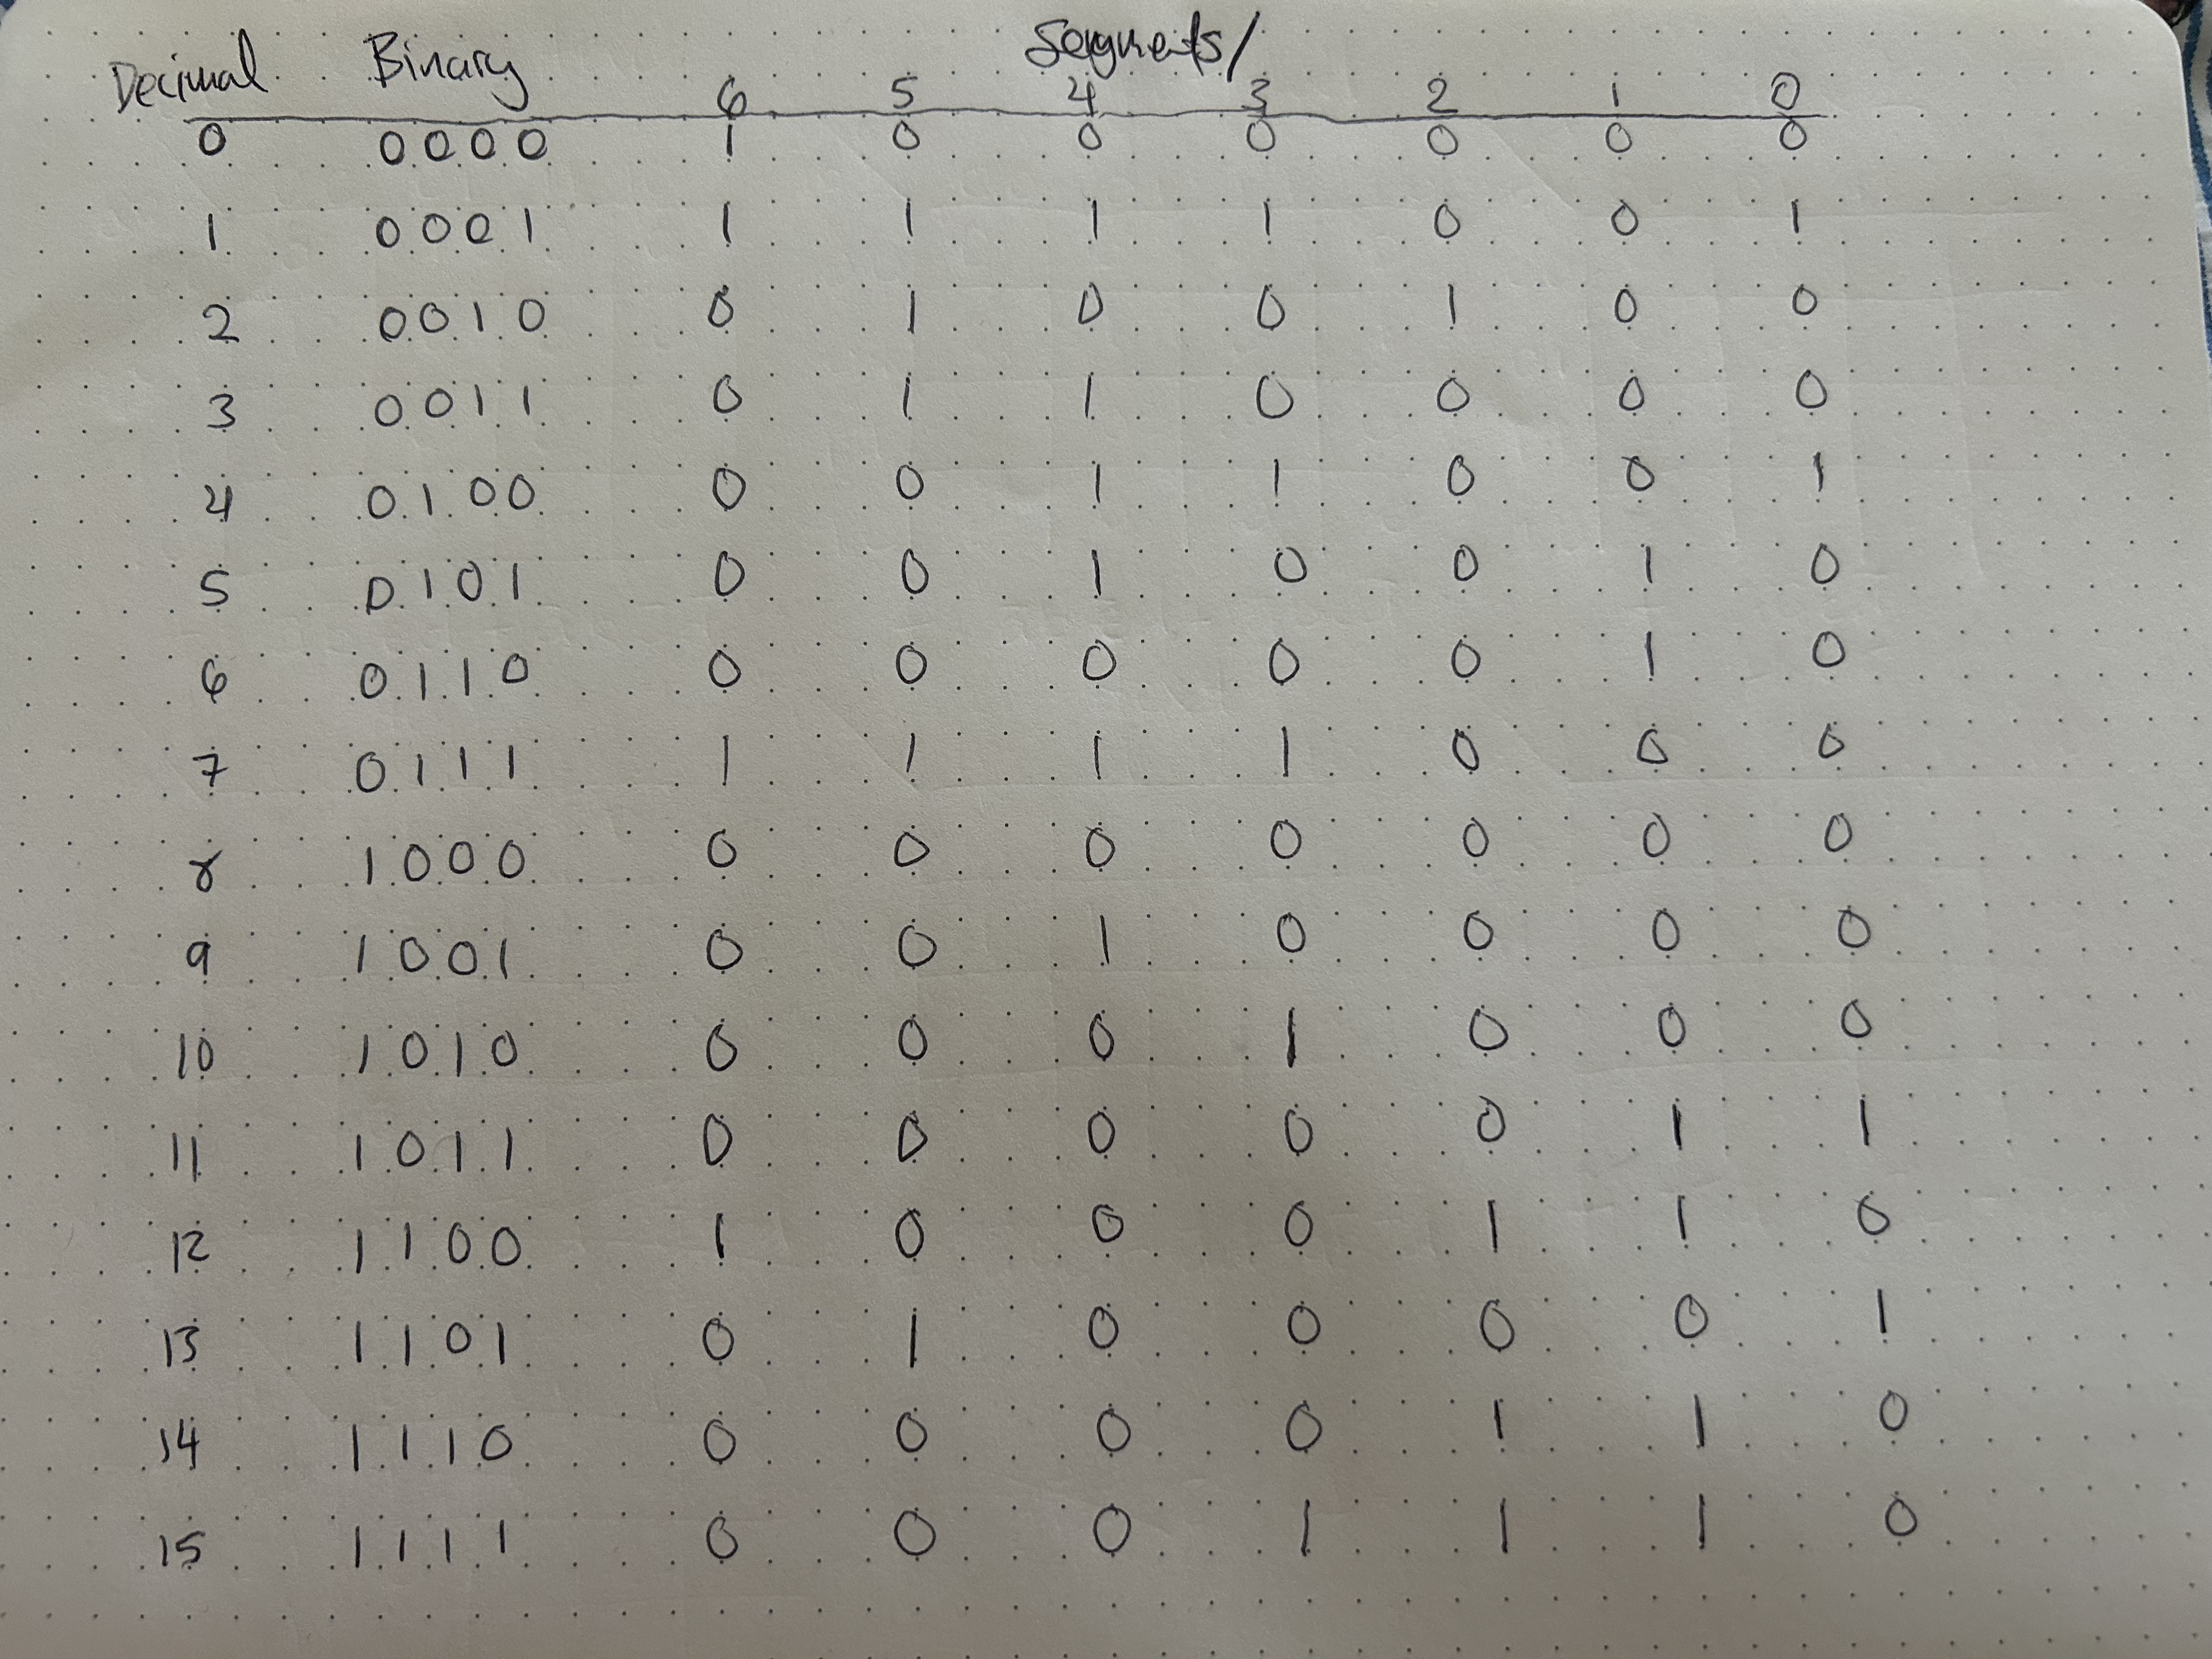 Segments/
Decimal Binary 6 5 4 3 2 1 0
0 0000 1 0 0 0 0 0 0
1 0001 1 1 1 1 0 0 1
2 0010 0 1 0 0 1 0 0
3 0011 0 1 1 0 0 0 0
4 0100 0 0 1 1 0 0 1
5 0101 0 0 1 0 0 1 0
6 0110 0 0 0 0 0 1 0
7 0111 1 1 1 1 0 0 0
8 1000 0 0 0 0 0 0 0
9 1001 0 0 1 0 0 0 0
10 1010 0 0 0 1 0 0 0
11 1011 0 0 0 0 0 1 1
12 1100 1 0 0 0 1 1 0
13 1101 0 1 0 0 0 0 1
14 1110 0 0 0 0 1 1 0
15 1111 0 0 0 1 1 1 0